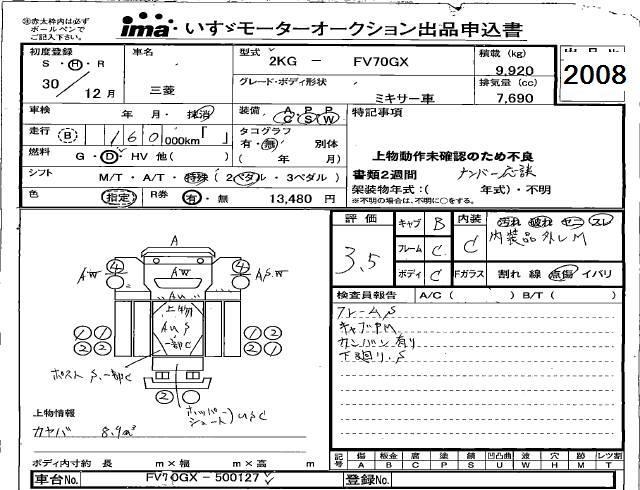 ※赤太枠内は必ず
ボールペンで
ご記入下さい。
ima いすゞモーターオークション出品申込書
初度登録 車名 型式 2KG - FV70GX 積載 (kg) 9,920
S・H・R
30 12月 三菱
グレード・ボディ形状 ミキサー車 排気量 (cc) 7,690
出品No
2008
車検 年 月・抹消 装備 A P P C S W 特記事項
走行 B 160 000km「 」 タコグラフ 有・無 別体
燃料 G・D・HV 他( ) ( 年 月)
上物動作未確認のため不良
シフト M/T・A/T・特殊(2ペダル・3ペダル) 書類2週間 ナンバー応談
色 指定 R券 有・無 13,480 円 架装物年式:( 年式)・不明
※不明の場合は、不明に○をする。
評価 3.5
キャブ B 内装 C 汚れ 破れ ヤニ スレ
内装品外しM
フレーム C
ボディ C Fガラス 割れ 線 点傷 イバリ
検査員報告 A/C ( ) B/T ( )
フレームS
キャブPM
カンバン有り
下廻り.S
A
AW 4 AW 4 A,S,W
AU
上物
AU S
一部C
1 1 1 2
2 2 2 2
ポスト S.一部C
2
ホッパー
シュート)USC
上物情報
カヤバ 8.9m³
ボディ内寸約 長 m×幅 m×高 m
記号 傷 A 板金 B 腐 C 塗 P 錆 S 凹凸曲 U 波 W 穴 H 跡 M レツ割 T
車台No. FV70GX-500127 登録No.